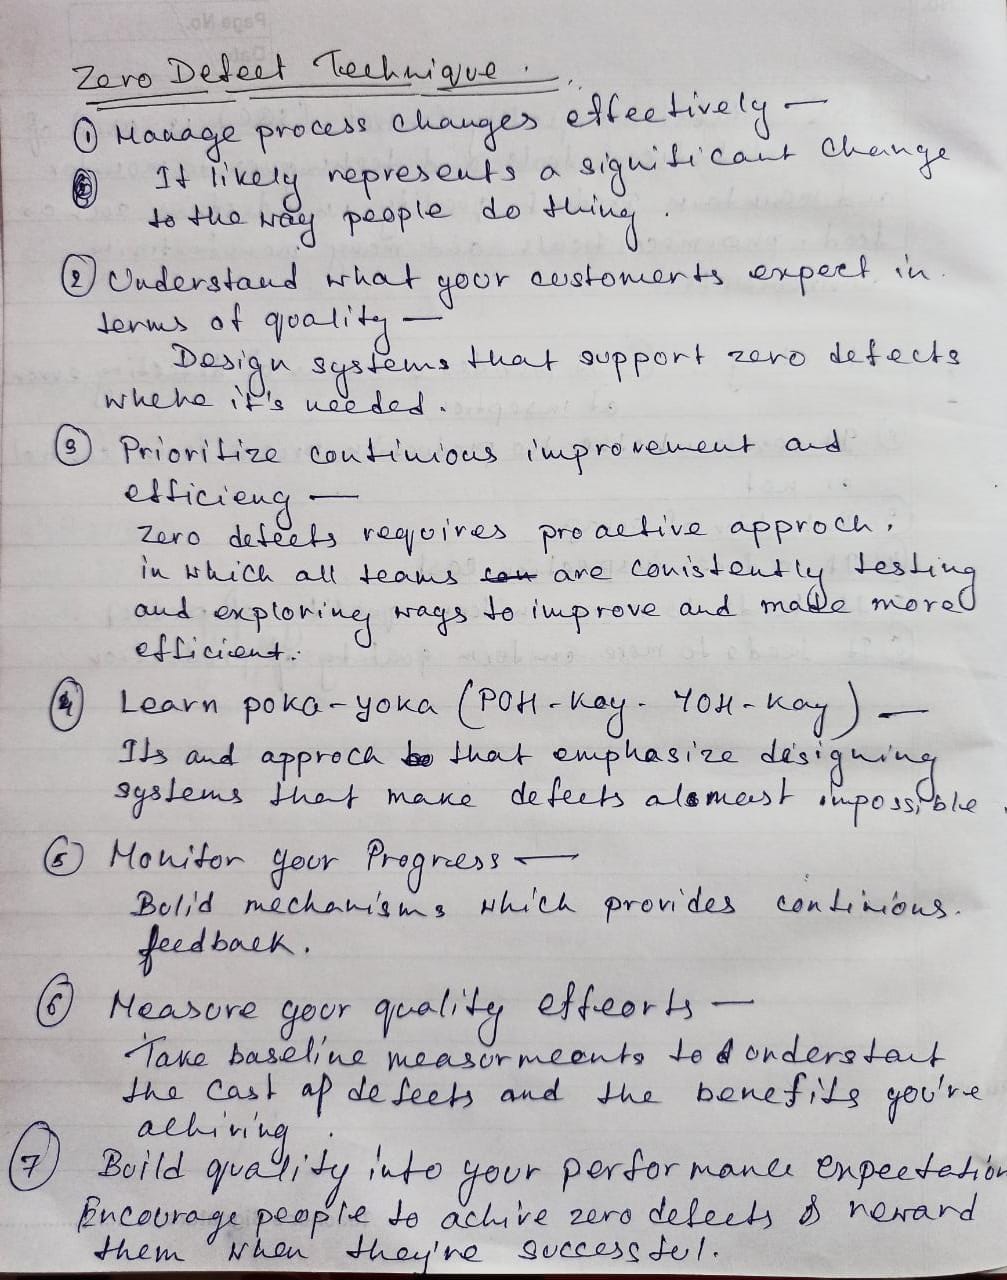 Zero Defect Technique.
① Manage process changes effectively —
It likely represents a significant change
to the way people do thing.
② Understand what your customerts expect in
terms of quality —
Design systems that support zero defects
whehe it's needed.
③ Prioritize continious improvement and
efficieng —
Zero defects requires proactive approch,
in which all teams are conistently testing
and exploring ways to improve and made more
efficient.
④ Learn poka-yoka (POH-Kay- YOH-Kay) —
Its and approch that emphasize designing
systems that make defects alomest impossible.
⑤ Monitor your Progress —
Bulid mechanisms which provides continious.
feedback.
⑥ Measure your quality effeorts —
Take baseline measurmeents to understant
the cast of defects and the benefits you're
achiving.
⑦ Build quality into your performance expectation
Encourage people to achive zero defects & reward
them when they're successful.